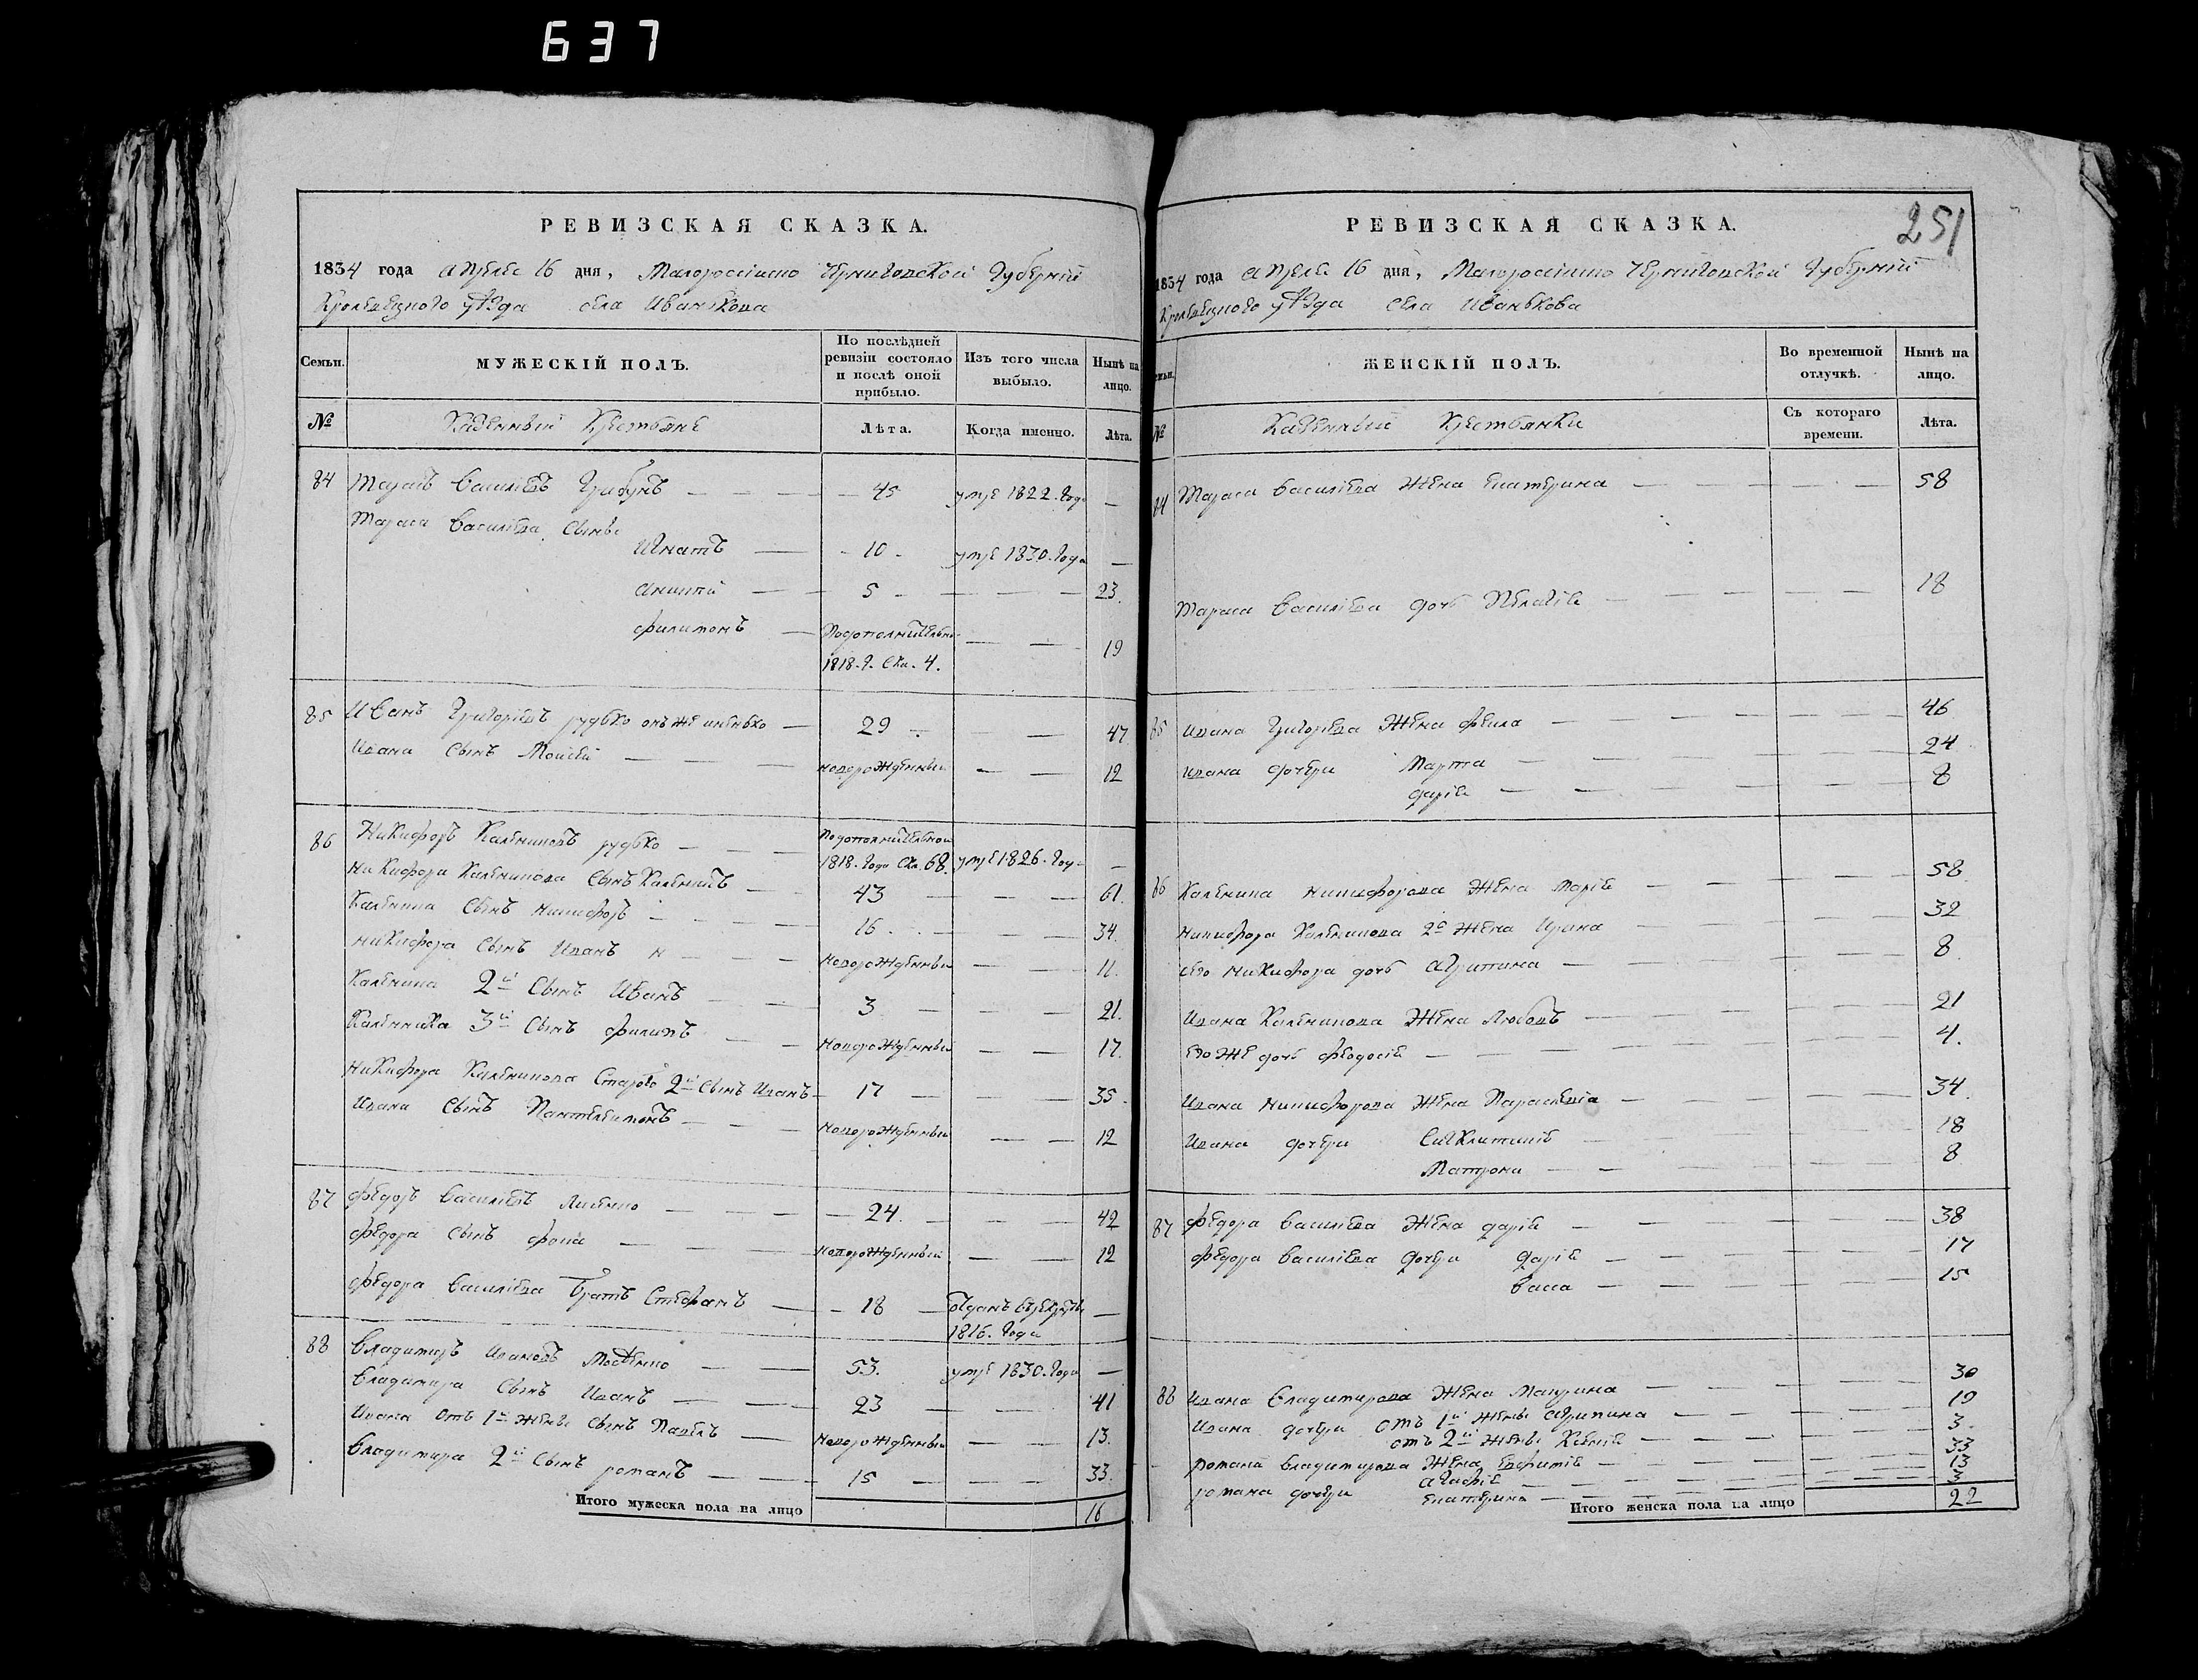 637
РЕВИЗСКАЯ СКАЗКА.
1834 года апреля 16 дня, Малороссийско Черниговской Губернии
Кролевецкого уѣзда села Иванькова
Семьи.
МУЖЕСКІЙ ПОЛЪ.
По послѣдней ревизіи состояло и послѣ оной прибыло.
Изъ того числа выбыло.
Нынѣ на лицо.
№
Казенныи Крестьяне
Лѣта.
Когда именно.
Лѣта.
84 Тарасъ Василіевъ Грибунъ — 45 умре 1822. Года —
Тараса Василіева Сыны
Игнатъ — 10 умре 1830. Года —
5 — 23.
Филимонъ — По дополнительно 1818. г. Ска. 4. — 19
85 Иванъ Григоріевъ рудько онъ же — 29 — 47
Ивана Сынъ Моисей — новорожденный — 12
86 Никифоръ Калениковъ рудько — По дополнительной 1818. Года Ска. 68. умре 1826. Году —
Никифора Каленикова Сынъ Каленикъ — 43 — 61.
Каленика Сынъ Никифоръ — 16. — 34.
Никифора Сынъ Иванъ — новорожденный — 11.
Каленика 2й Сынъ Иванъ — 3 — 21.
Каленика 3й Сынъ Филипъ — новорожденный — 17.
Никифора Каленикова Старого 2й Сынъ Иванъ — 17 — 35.
Ивана Сынъ Пантелеимонъ — новорожденный — 12
87 Федоръ Василіевъ — 24. — 42
Федора Сынъ Фома — новорожденный — 12
Федора Василіева Братъ Стефанъ — 18 — Отданъ 1816. Года —
88 Владимиръ Ивановъ — 53. умре 1830. Года —
Владимира Сынъ Иванъ — 23 — 41
Ивана отъ 1й жены Сынъ Павелъ — новорожденный — 13.
Владимира 2й Сынъ романъ — 15 — 33.
Итого мужеска пола на лицо 16
РЕВИЗСКАЯ СКАЗКА.
251
1834 года апреля 16 дня, Малороссийско Черниговской Губернии
Кролевецкого уѣзда села Иванькова
ЖЕНСКІЙ ПОЛЪ.
Во временной отлучкѣ.
Нынѣ на лицо.
№
Казенныи Крестьянки
Съ котораго времени.
Лѣта.
84 Тараса Василіева Жена Екатерина — 58
Тараса Василіева дочь Пелагія — 18
85 Ивана Григоріева Жена Фекла — 46
Ивана дочери Марта — 24
дарія — 8
86 Каленика Никифорова Жена Марія — 58
Никифора Каленикова 2я Жена Ирина — 32
его Никифора дочь Агрипина — 8
Ивана Каленикова Жена Любовъ — 21
его же дочь Феодосія — 4.
Ивана Никифорова Жена Параскевіа — 34.
Ивана дочери Синклитикія — 18
Матрона — 8
87 Федора Василіева Жена дарія — 38
Федора Василіева дочери дарія — 17
Васса — 15
88 Ивана Владимирова Жена Маврина — 30
Ивана дочери отъ 1й жены Агрипина — 19
отъ 2й жены Ксенія — 3.
романа Владимирова Жена Евфимія — 33
романа дочери Агафія — 13
Екатерина — 3
Итого женска пола на лицо 22